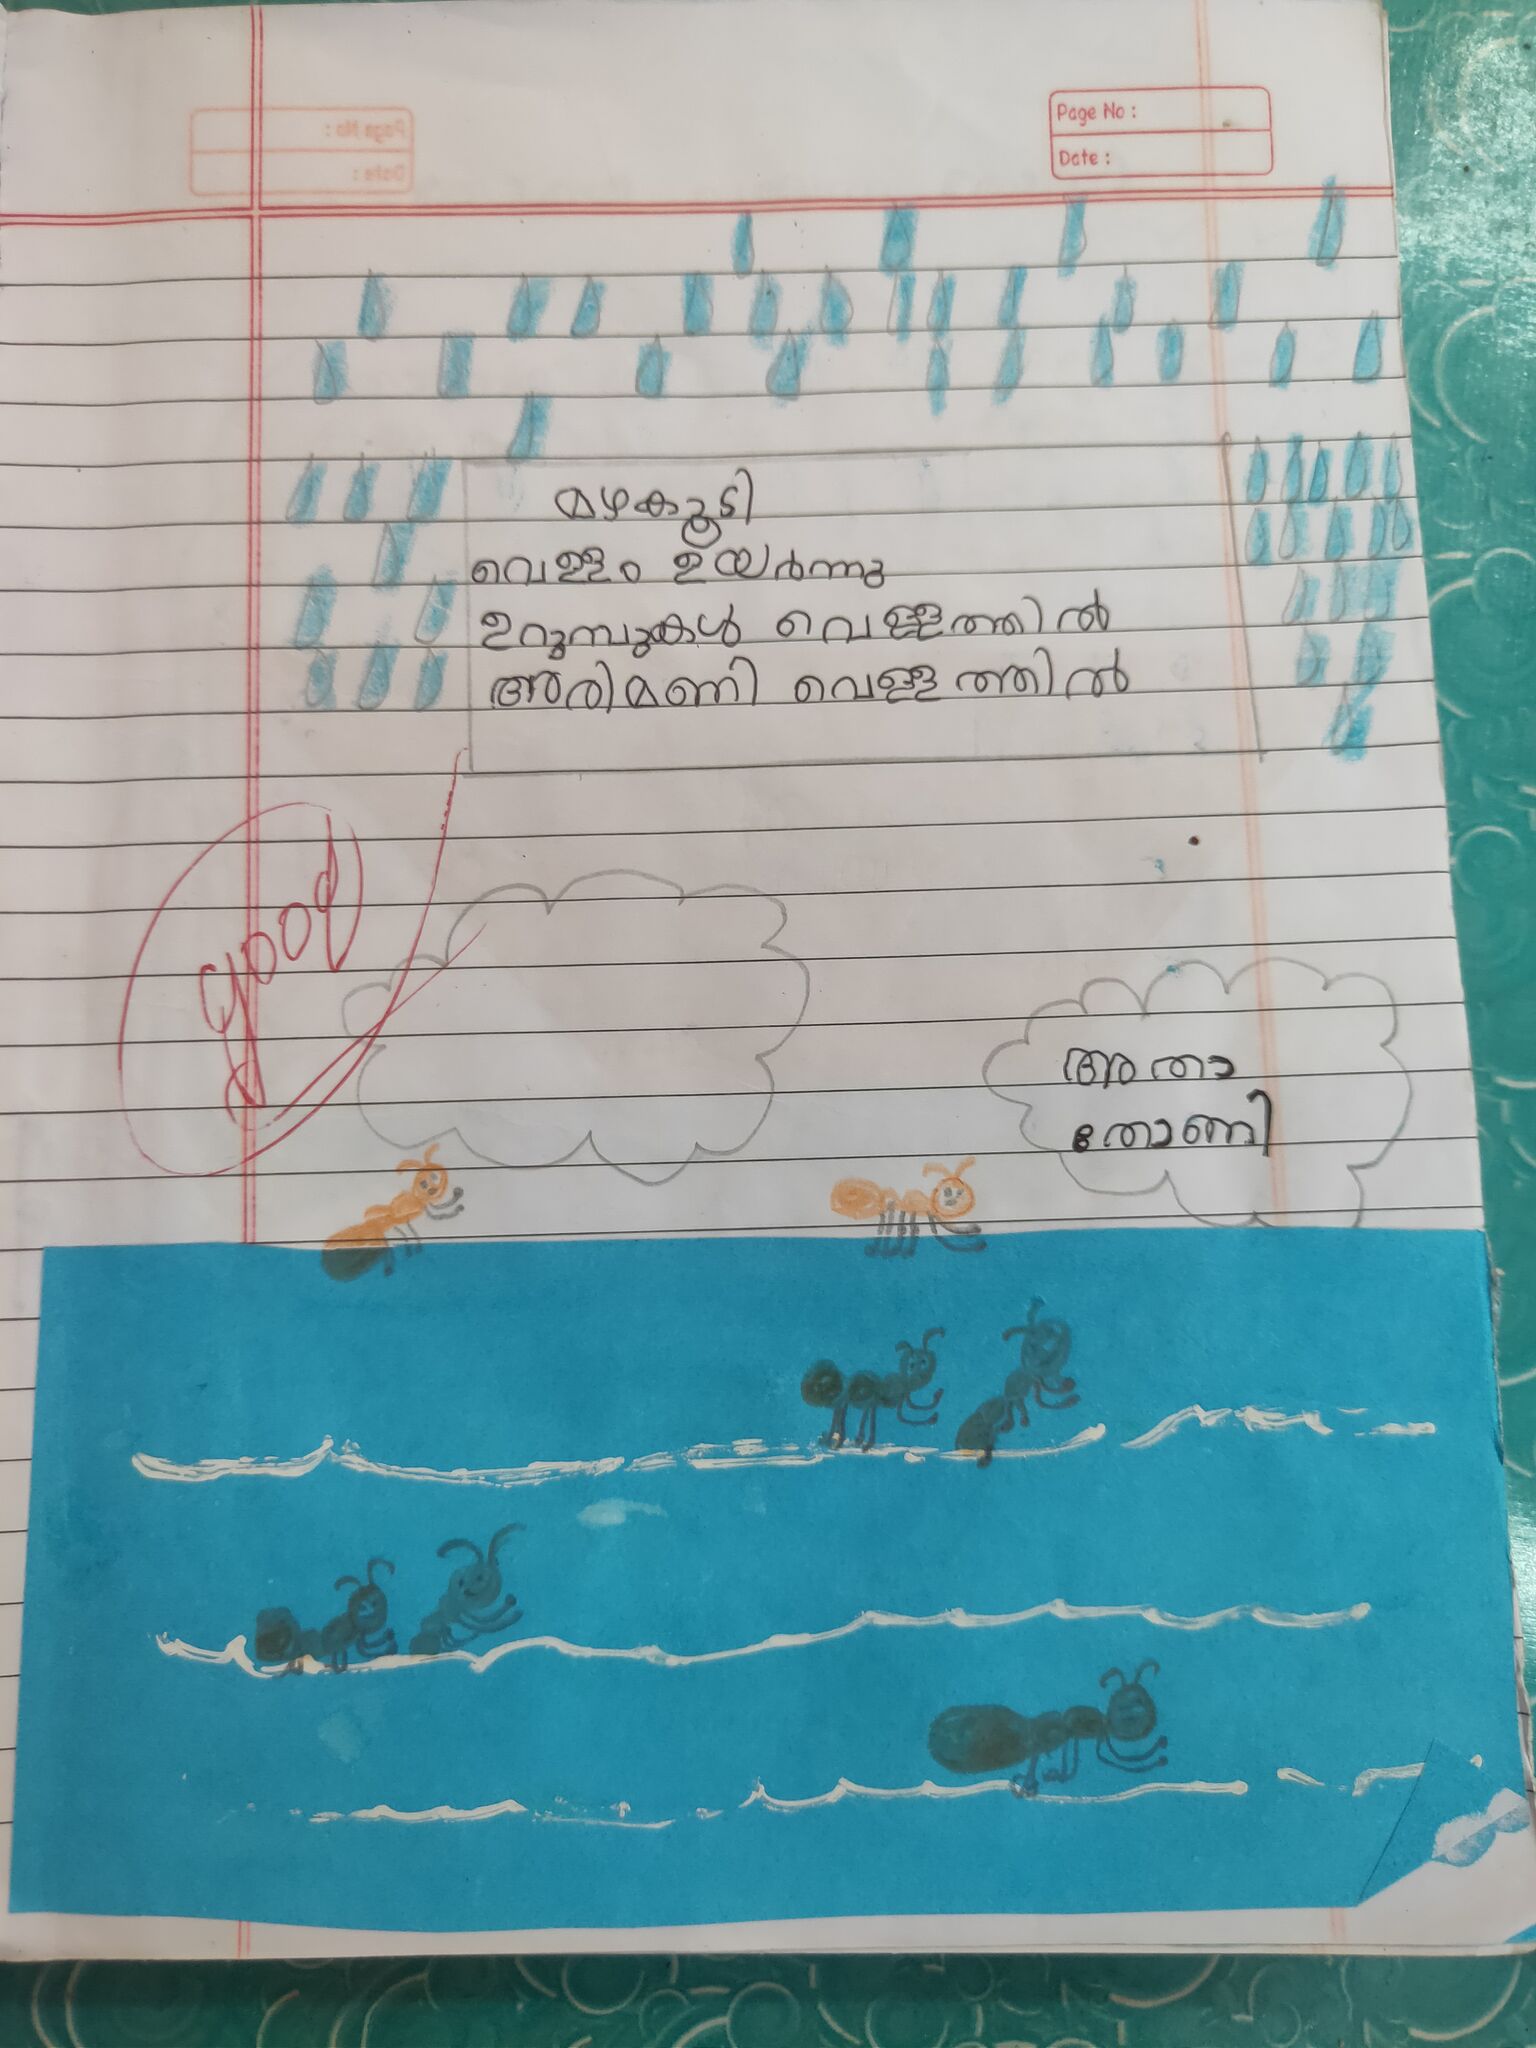 Page No :
Date :
Page No :
Date :
മഴകൂടി
വെള്ളം ഉയർന്നു
ഉറുമ്പുകൾ വെള്ളത്തിൽ
അരിമണി വെള്ളത്തിൽ
good
അതാ
തോണി